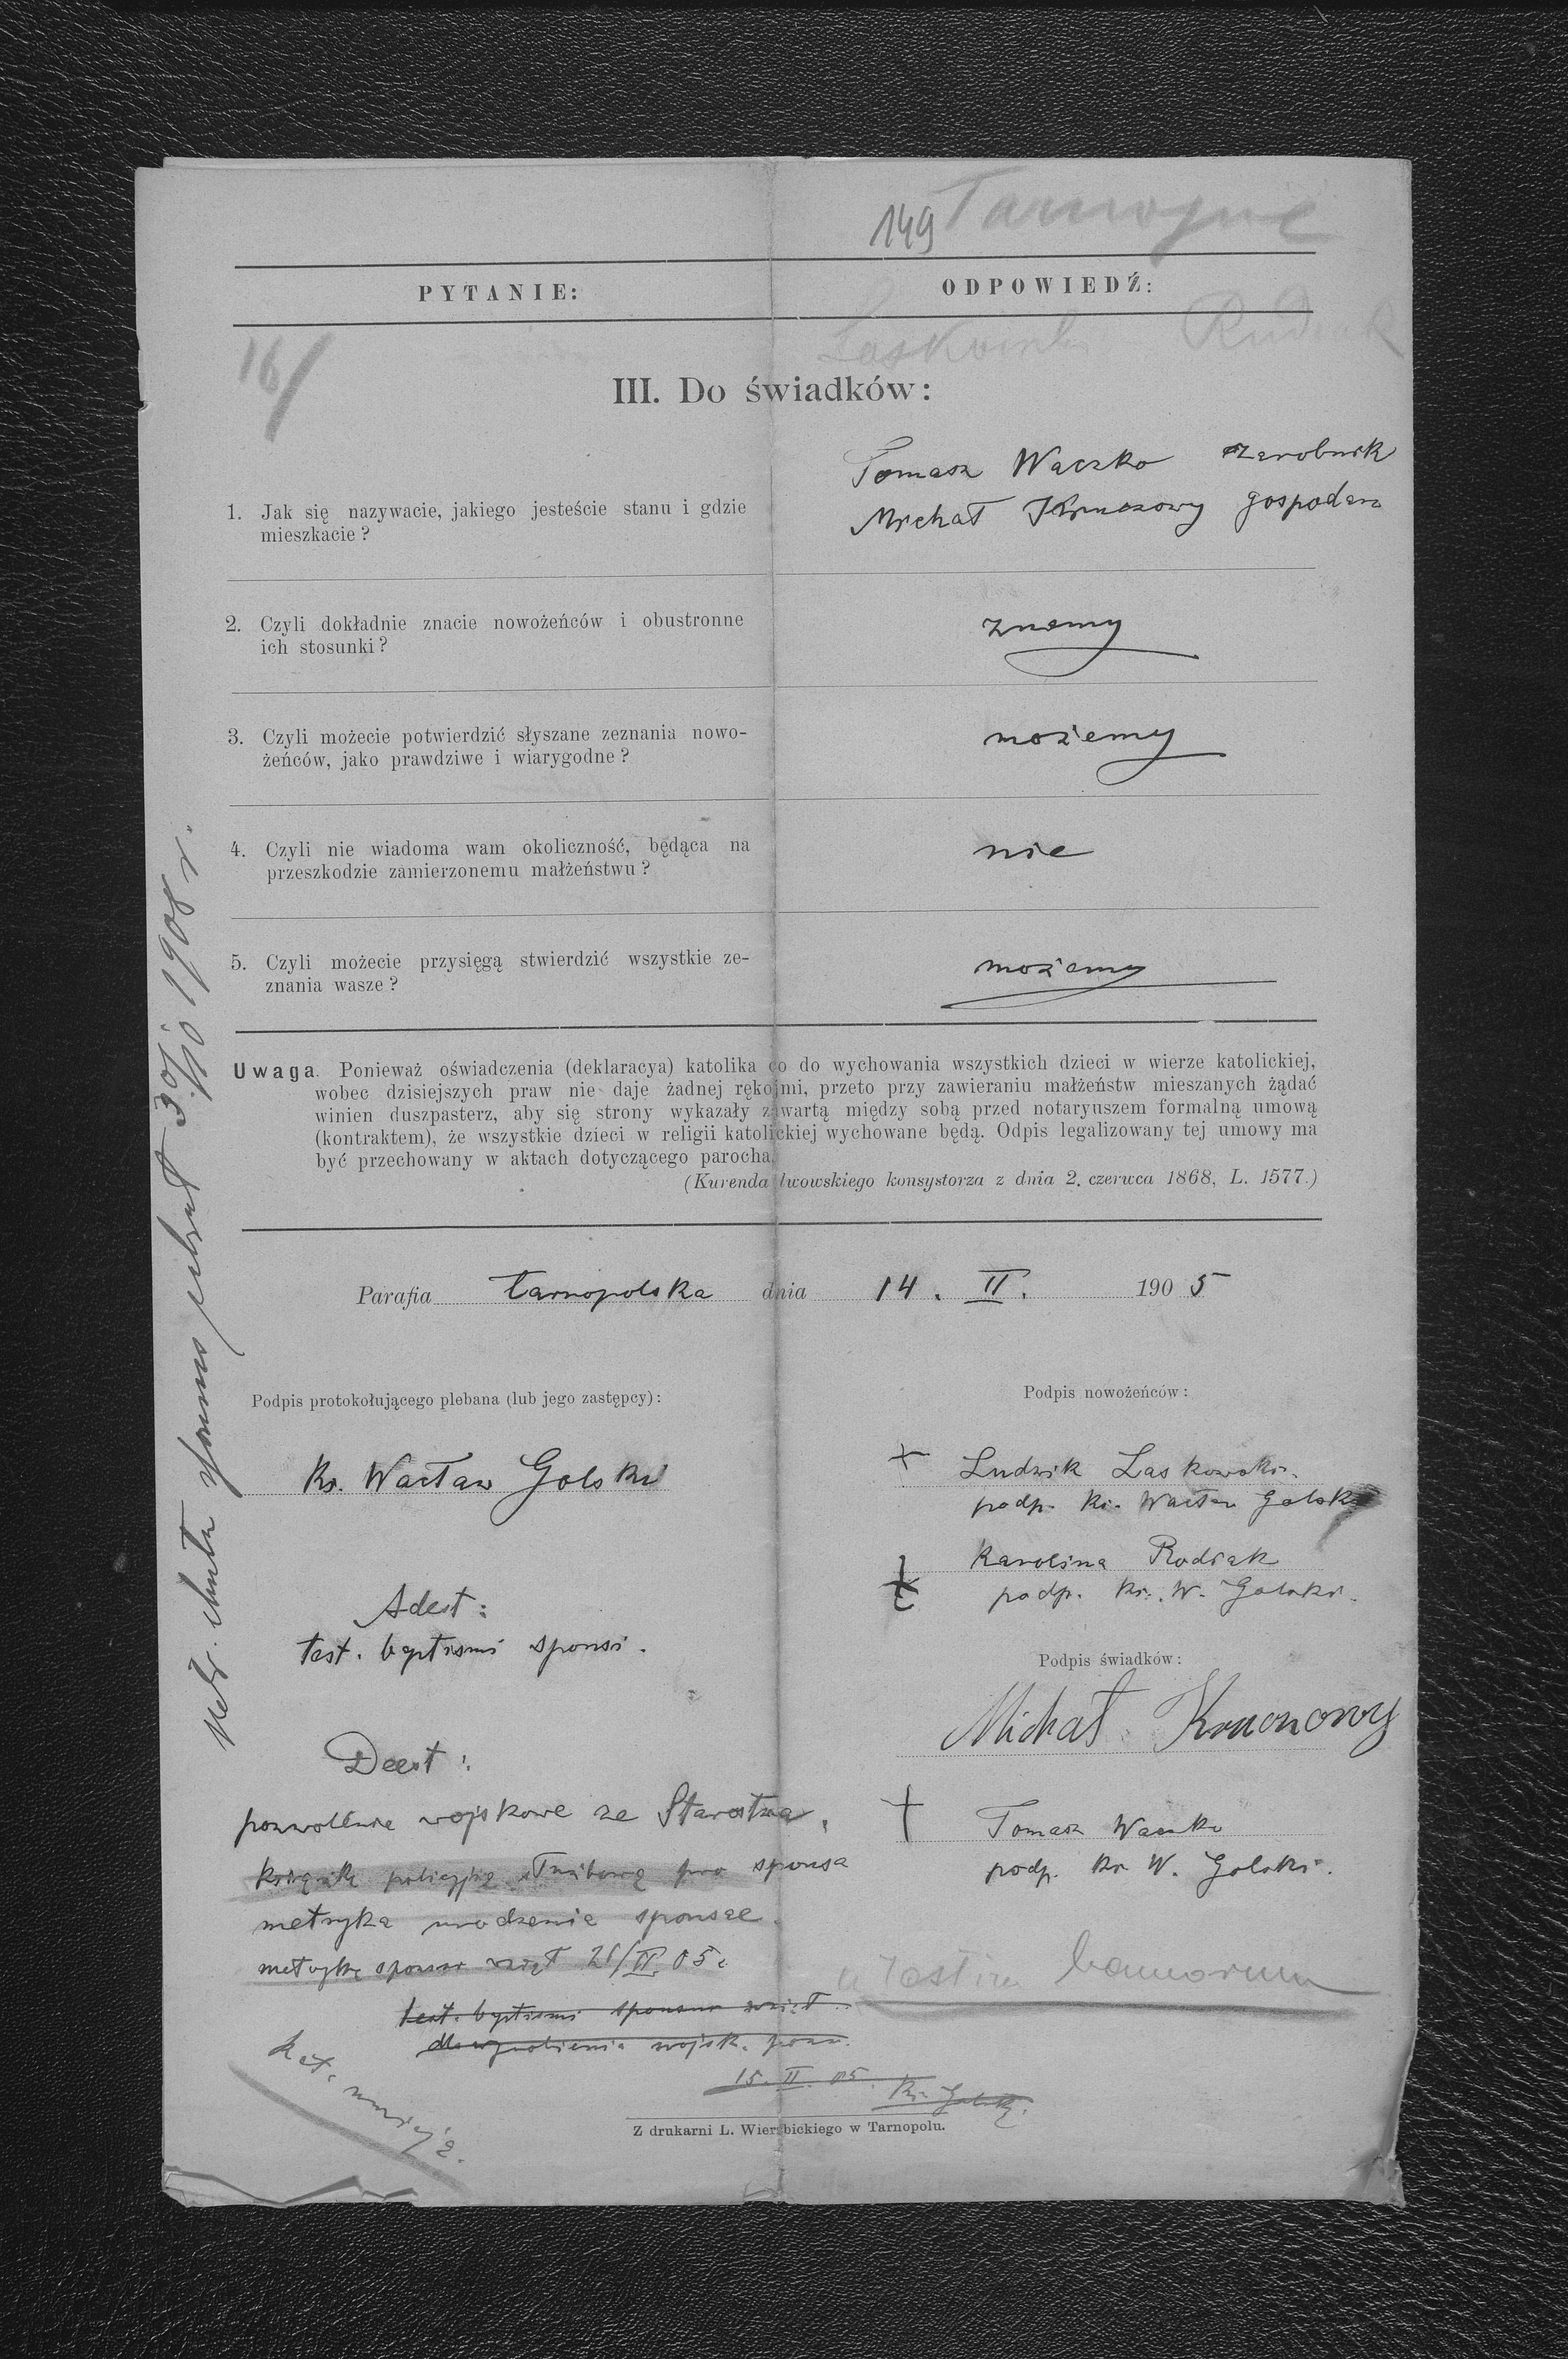 149 Tarnopol
PYTANIE: ODPOWIEDŹ:
16/ Laskowski Rudiak
III. Do świadków:
Tomasz Waczko zarobnik
Michał gospodarz
1. Jak się nazywacie, jakiego jesteście stanu i gdzie
mieszkacie?
2. Czyli dokładnie znacie nowożeńców i obustronne
ich stosunki?
znamy
3. Czyli możecie potwierdzić słyszane zeznania nowo-
żeńców, jako prawdziwe i wiarygodne?
możemy
4. Czyli nie wiadoma wam okoliczność, będąca na
przeszkodzie zamierzonemu małżeństwu?
nie
5. Czyli możecie przysięgą stwierdzić wszystkie ze-
znania wasze?
możemy
Uwaga. Ponieważ oświadczenia (deklaracya) katolika co do wychowania wszystkich dzieci w wierze katolickiej,
wobec dzisiejszych praw nie daje żadnej rękojmi, przeto przy zawieraniu małżeństw mieszanych żądać
winien duszpasterz, aby się strony wykazały zawartą między sobą przed notaryuszem formalną umową
(kontraktem), że wszystkie dzieci w religii katolickiej wychowane będą. Odpis legalizowany tej umowy ma
być przechowany w aktach dotyczącego parocha.
(Kurenda lwowskiego konsystorza z dnia 2. czerwca 1868, L. 1577.)
Parafia tarnopolska dnia 14. II. 1905
Podpis protokołującego plebana (lub jego zastępcy):
Ks. Wacław Golski
Podpis nowożeńców:
+ Ludwik Laskowski
podp. ks. Wacław Golski
+ Karolina Rudiak
podp. Ks. W. Golski.
Adest:
test. baptismi sponsi.
Podpis świadków:
Michał
† Tomasz Waczko
podp. Ks W. Golski.
Deest:
pozwolenie wojskowe ze Starostwa,
książkę policyjną służbową pro sponsa
metryka urodzenia sponsae.
metrykę wziął 21/II 05
test. baptismi wziął
wojsk. pozw.
15. II. 05. Ks. Golski
bannorum
Kat.
Z drukarni L. Wierzbickiego w Tarnopolu.
30/10 1908 r.